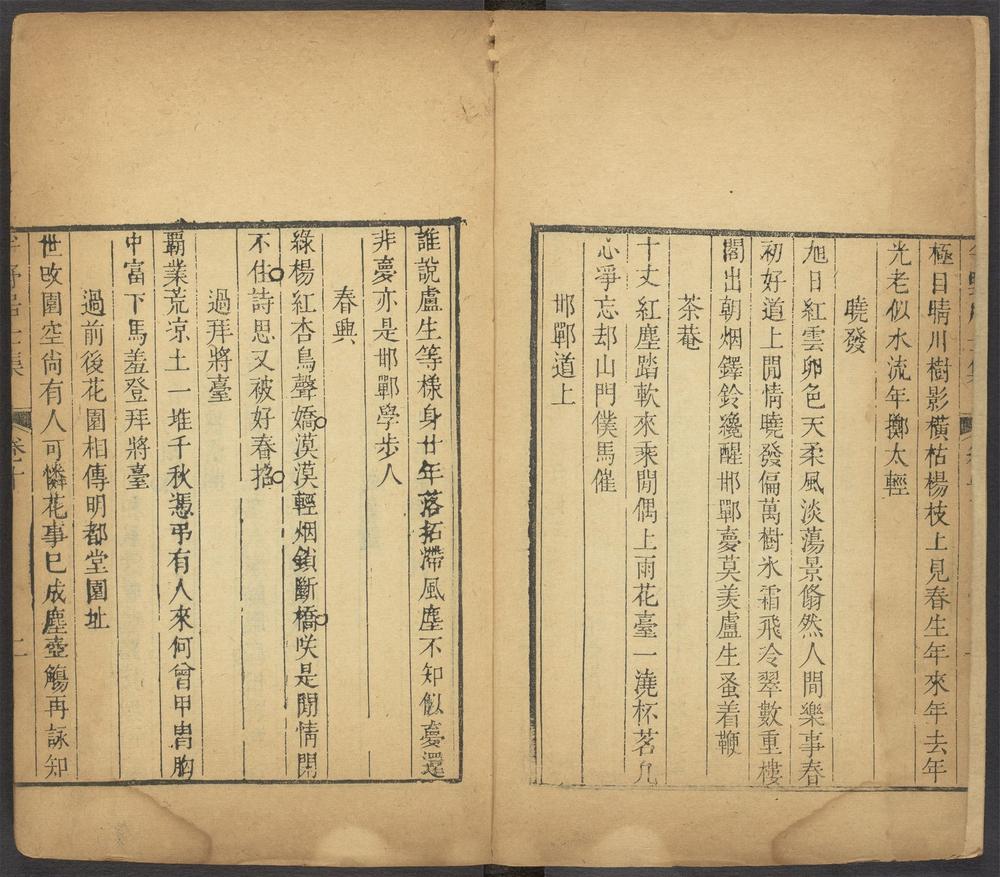 極目晴川樹影橫枯楊枝上見春生年來年去年
光老似水流年擲太輕
曉發
旭日紅雲卵色天柔風淡蕩景翛然人間樂事春
初好道上閒情曉發偏萬樹氷霜飛冷翠數重樓
閣出朝烟鐸鈴纔醒邯鄲夢莫羨盧生蚤着鞭
茶菴
十丈紅塵踏軟來乘閒偶上雨花臺一澆杯茗几
心爭忘却山門僕馬催
邯鄲道上
誰說盧生等樣身廿年落拓滯風塵不知似夢還
非夢亦是邯鄲學步人
春興
綠楊紅杏鳥聲嬌漠漠輕烟鎖斷橋咲是閒情閑
不住詩思又被好春招
過拜將臺
覇業荒凉土一堆千秋憑弔有人來何曾甲冑胸
中富下馬羞登拜將臺
過前後花園相傳明都堂園址
世改園空尙有人可憐花事已成塵壺觴再詠知
居士集 卷十 二